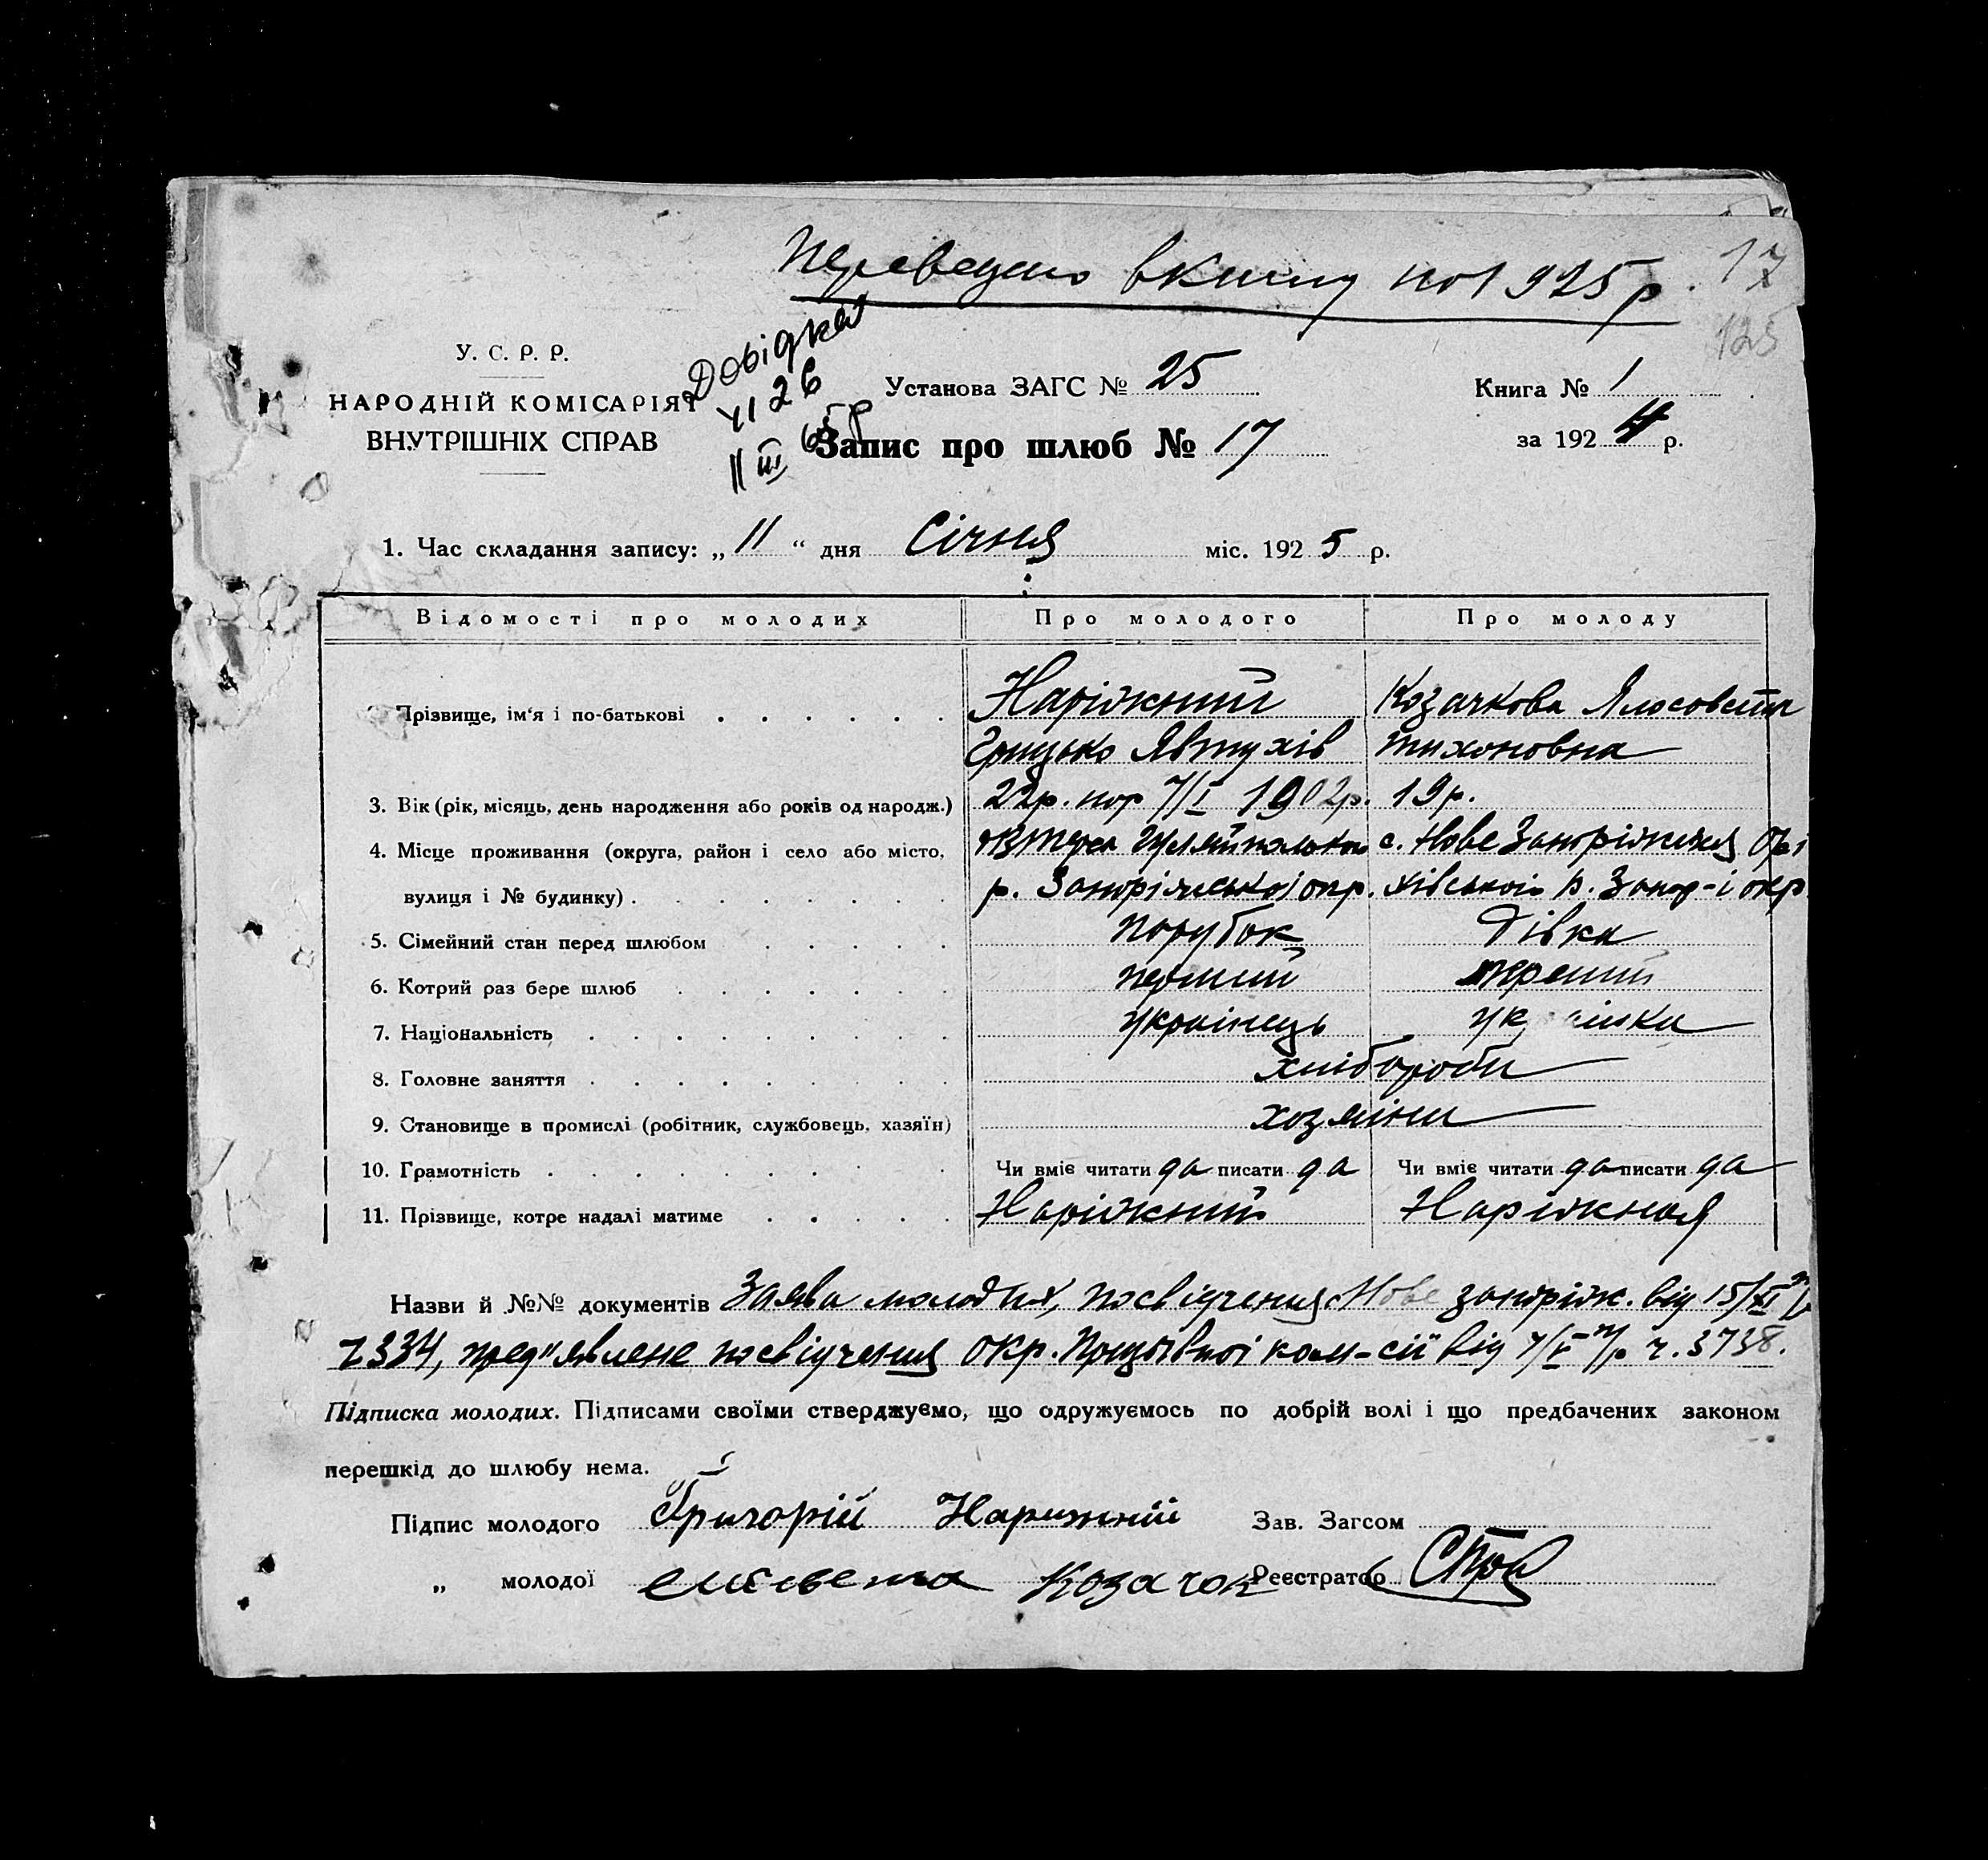 Переведено в книгу по 1925 р. 17
125
У. С. Р. Р.
НАРОДНІЙ КОМІСАРІЯТ
ВНУТРІШНІХ СПРАВ
Довідка
II III 65 р
Установа ЗАГС № 25
Книга № 1
Запис про шлюб № 17
за 1924 р.
1. Час складання запису: „ 11 “ дня Січня міс. 1925 р.
Відомості про молодих Про молодого Про молоду
Прізвище, ім'я і по-батькові Наріжний Козачкова Ялисовета
Грицько Явтухів Тихоновна
3. Вік (рік, місяць, день народження або років од народж.) 22р. нар 7/I 1902р. 19 р.
4. Місце проживання (округа, район і село або місто, Гуляйпольск с. Нове Запоріжжя Орі
вулиця і № будинку) р. Запоріжської окр. хівського р. Запор-ї окр
5. Сімейний стан перед шлюбом Парубок Дівка
6. Котрий раз бере шлюб перший перший
7. Національність українець українка
8. Головне заняття хлібороби
9. Становище в промислі (робітник, службовець, хазяїн) хозяїни
10. Грамотність Чи вміє читати да писати да Чи вміє читати да писати да
11. Прізвище, котре надалі матиме Наріжний Наріжная
Назви й №№ документів Заява молодих, посвідчення Нове запоріж. від 15/XI
2334, пред"явлене посвідчення Окр. Призивної ком-сії від ч. 3738.
Підписка молодих. Підписами своїми стверджуємо, що одружуємось по добрій волі і що предбачених законом
перешкід до шлюбу нема.
Підпис молодого Григорій Нарижній Зав. Загсом
„ молодої Козачок Реєстратор